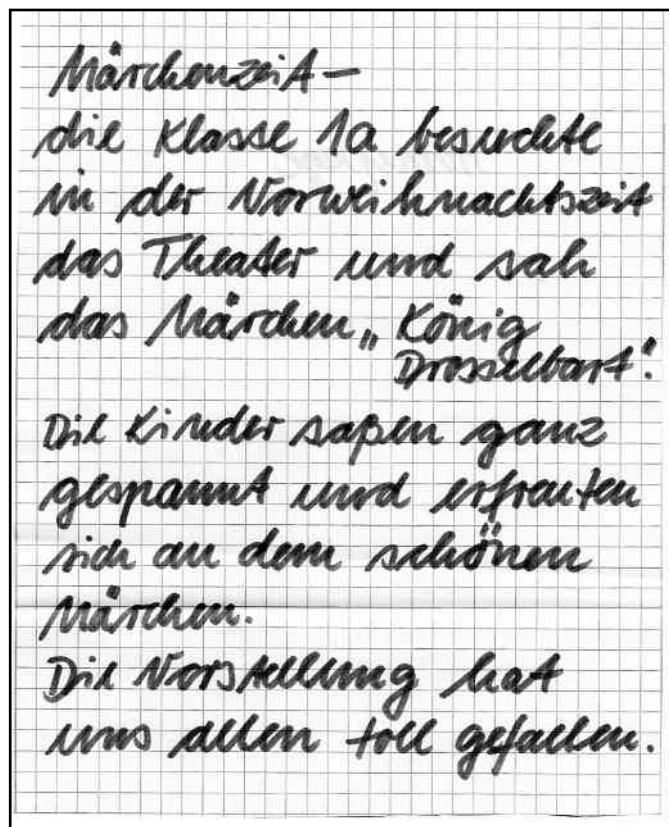 Märchenzeit –
die Klasse 1a besuchte
in der Vorweihnachtszeit
das Theater und sah
das Märchen „König
Drosselbart“.
Die Kinder saßen ganz
gespannt und erfreuten
sich an dem schönen
Märchen.
Die Vorstellung hat
uns allen toll gefallen.